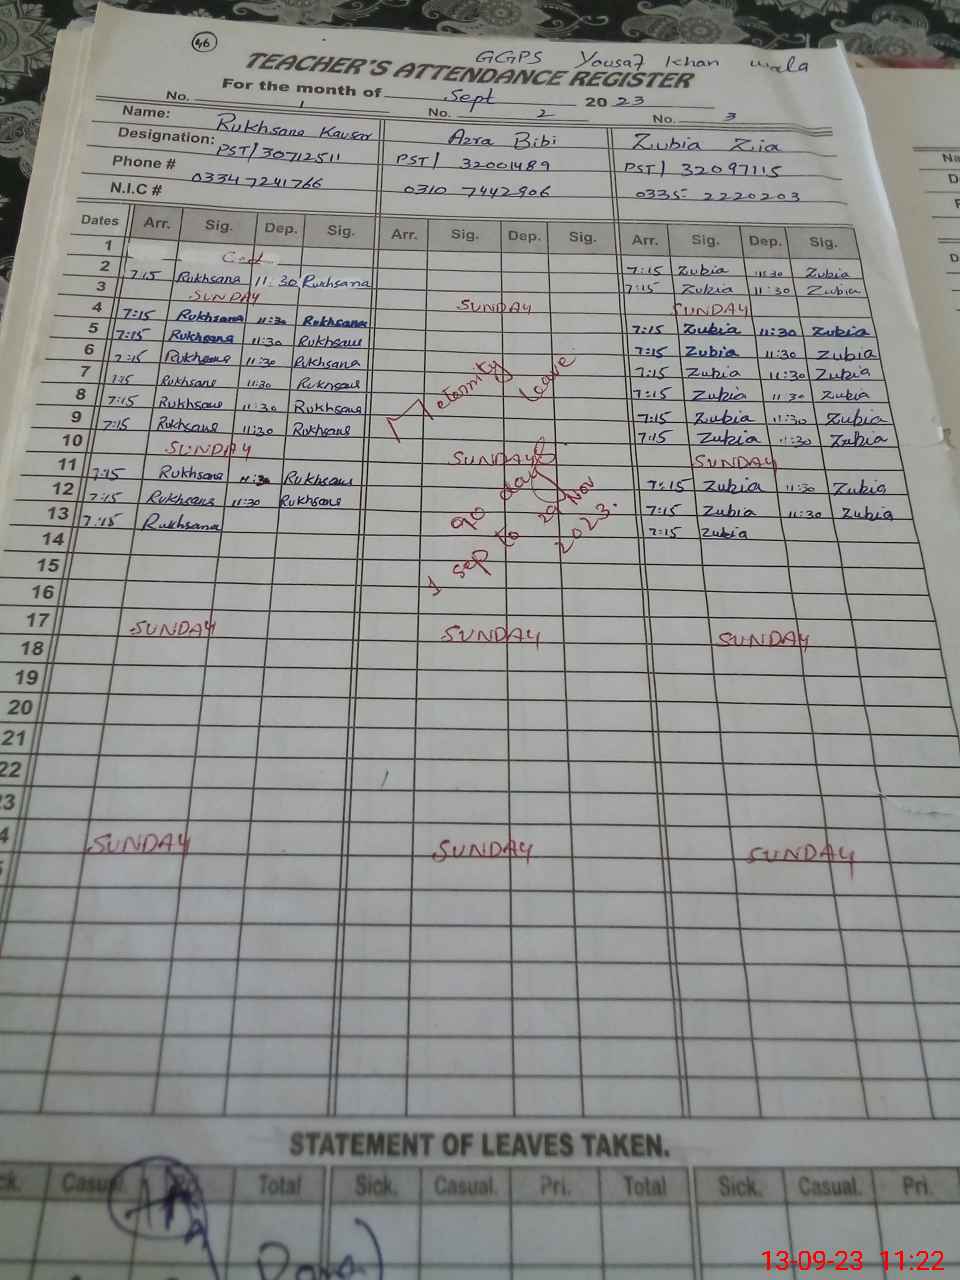 46
GGPS Yousaf Khan wala
TEACHER'S ATTENDANCE REGISTER
For the month of Sept 2023
No. 1 No. 2 No. 3
Name: Rukhsana Kausar Azra Bibi Zubia Zia
Designation: PST/30712511 PST/ 32001489 PST/ 32097115
Phone # 03347241766 0310 7442906 0335- 2220203
N.I.C #
Dates Arr. Sig. Dep. Sig. Arr. Sig. Dep. Sig. Arr. Sig. Dep. Sig.
1 7:15 Zubia 11:30 Zubia
2 7:15 Rukhsana 11:30 Rukhsana 7:15 Zubia 11:30 Zubia
3 SUNDAY SUNDAY SUNDAY
4 7:15 Rukhsana 11:30 Rukhsana 7:15 Zubia 11:30 Zubia
5 7:15 Rukhsana 11:30 Rukhsana 7:15 Zubia 11:30 Zubia
6 7:15 Rukhsana 11:30 Rukhsana 7:15 Zubia 11:30 Zubia
7 7:15 Rukhsana 11:30 Rukhsana 7:15 Zubia 11:30 Zubia
8 7:15 Rukhsana 11:30 Rukhsana 7:15 Zubia 11:30 Zubia
9 7:15 Rukhsana 11:30 Rukhsana 7:15 Zubia 11:30 Zubia
Meternity leave
10 SUNDAY SUNDAY SUNDAY
11 7:15 Rukhsana 11:30 Rukhsana 7:15 Zubia 11:30 Zubia
12 7:15 Rukhsana 11:30 Rukhsana 7:15 Zubia 11:30 Zubia
13 7:15 Rukhsana 7:15 Zubia
90 days
1 sep to 29 Nov
2023.
14
15
16
17 SUNDAY SUNDAY SUNDAY
18
19
20
21
22
3
4 SUNDAY SUNDAY SUNDAY
STATEMENT OF LEAVES TAKEN.
ck. Casual. Total Sick. Casual. Pri. Total Sick. Casual. Pri.
13-09-23 11:22